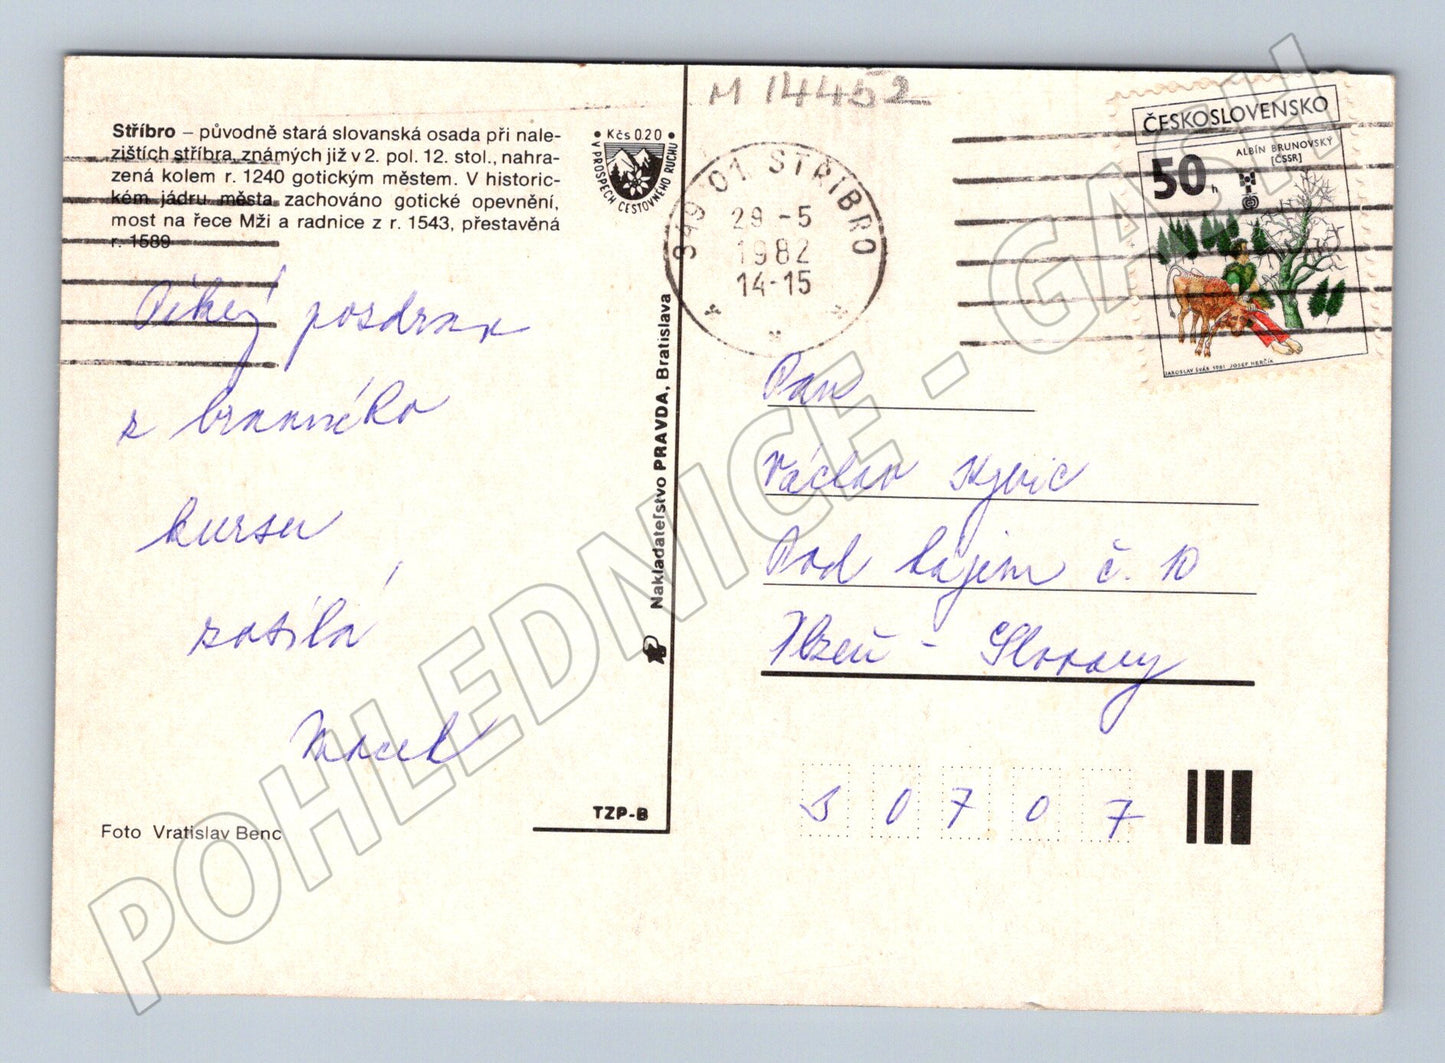 M 14452
Stříbro – původně stará slovanská osada při nale-
zištích stříbra, známých již v 2. pol. 12. stol., nahra-
zená kolem r. 1240 gotickým městem. V historic-
kém jádru města zachováno gotické opevnění,
most na řece Mži a radnice z r. 1543, přestavěná
r. 1589
• Kčs 0.20 •
V PROSPĚCH CESTOVNÉHO RUCHU
349 01 STŘÍBRO
29 -5
1982
14-15
ČESKOSLOVENSKO
ALBÍN BRUNOVSKÝ
[ČSSR]
50 h
JAROSLAV ŠVÁB 1981 JOSEF HERČÍK
Pěkný pozdrav
z branného
kursu
zasílá
Macek
Nakladateľstvo PRAVDA, Bratislava
Pan
Václav
Pod hájem č. 10
Plzeň - Slovany
30707
TZP-B
Foto Vratislav Benc
POHLEDNICE - GASH